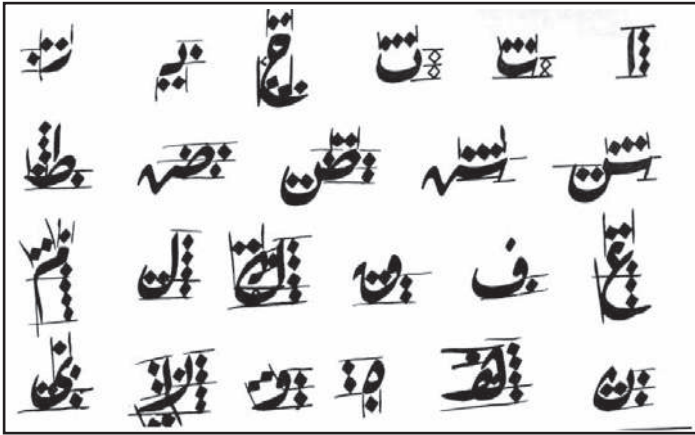 ا ب ب ح د ر
س س ص ص ط
ع ف ق ك ل م
ن ه ه و لا ى